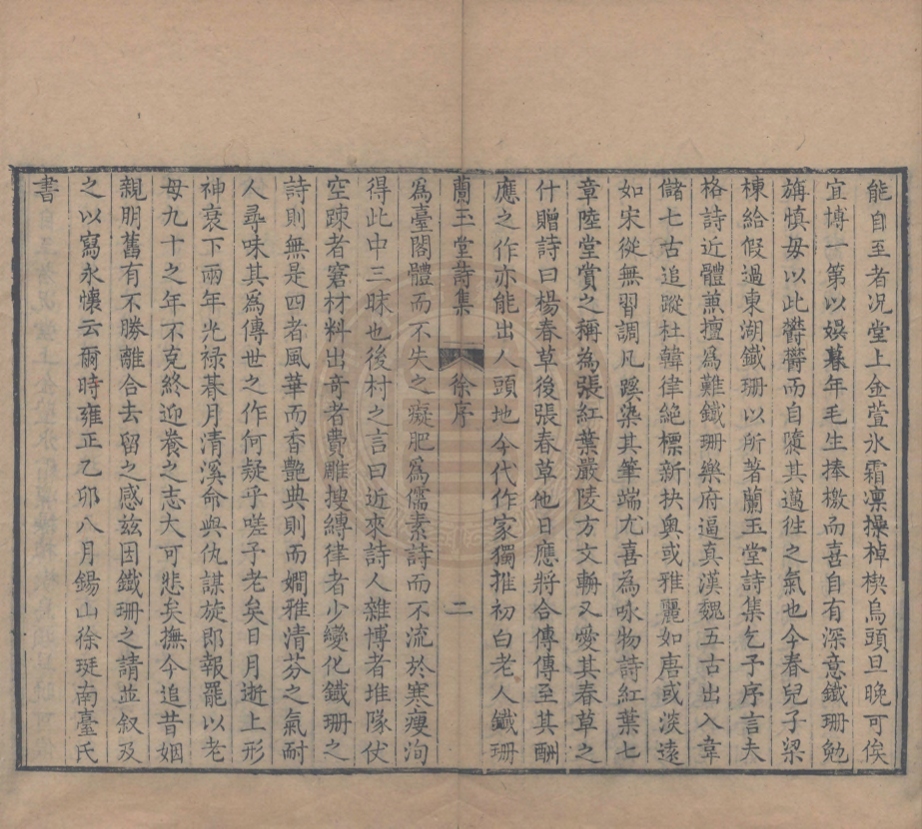 能自至者况堂上金萱氷霜凛操棹楔烏頭旦晚可俟
宜博一第以娱暮年毛生捧檄而喜自有深意鐵珊勉
旃慎毋以此欝欝而自隳其邁徃之氣也今春兒子梁
棟給假過東湖鐵珊以所著蘭玉堂詩集乞予序言夫
格詩近體蒹擅為難鐵珊樂府逼真漢魏五古出入韋
儲七古追蹤杜韓律絶標新抉奥或雅麗如唐或淡遠
如宋從無習調凡蹊染其筆端尤喜為咏物詩紅葉七
章陸堂賞之稱為張紅葉嚴陵方文輈又愛其春草之
什贈詩曰楊春草後張春草他日應將合傳傳至其酬
應之作亦能出人頭地今代作家獨推初白老人鐵珊
蘭玉堂詩集 徐序 二
為臺閣體而不失之癡肥為儒素詩而不流於寒瘦洵
得此中三昧也後村之言曰近來詩人雜博者堆隊仗
空疎者窘材料出竒者費雕搜縛律者少變化鐵珊之
詩則無是四者風華而香艷典則而嫺雅清芬之氣耐
人尋味其為傳世之作何疑乎嗟予老矣日月逝上形
神衰下兩年光禄朞月清溪命與仇謀旋郎報罷以老
母九十之年不克終迎養之志大可悲矣撫今追昔姻
親朋舊有不勝離合去留之感兹因鐵珊之請並叙及
之以寫永懷云爾時雍正乙夘八月錫山徐珽南臺氏
書